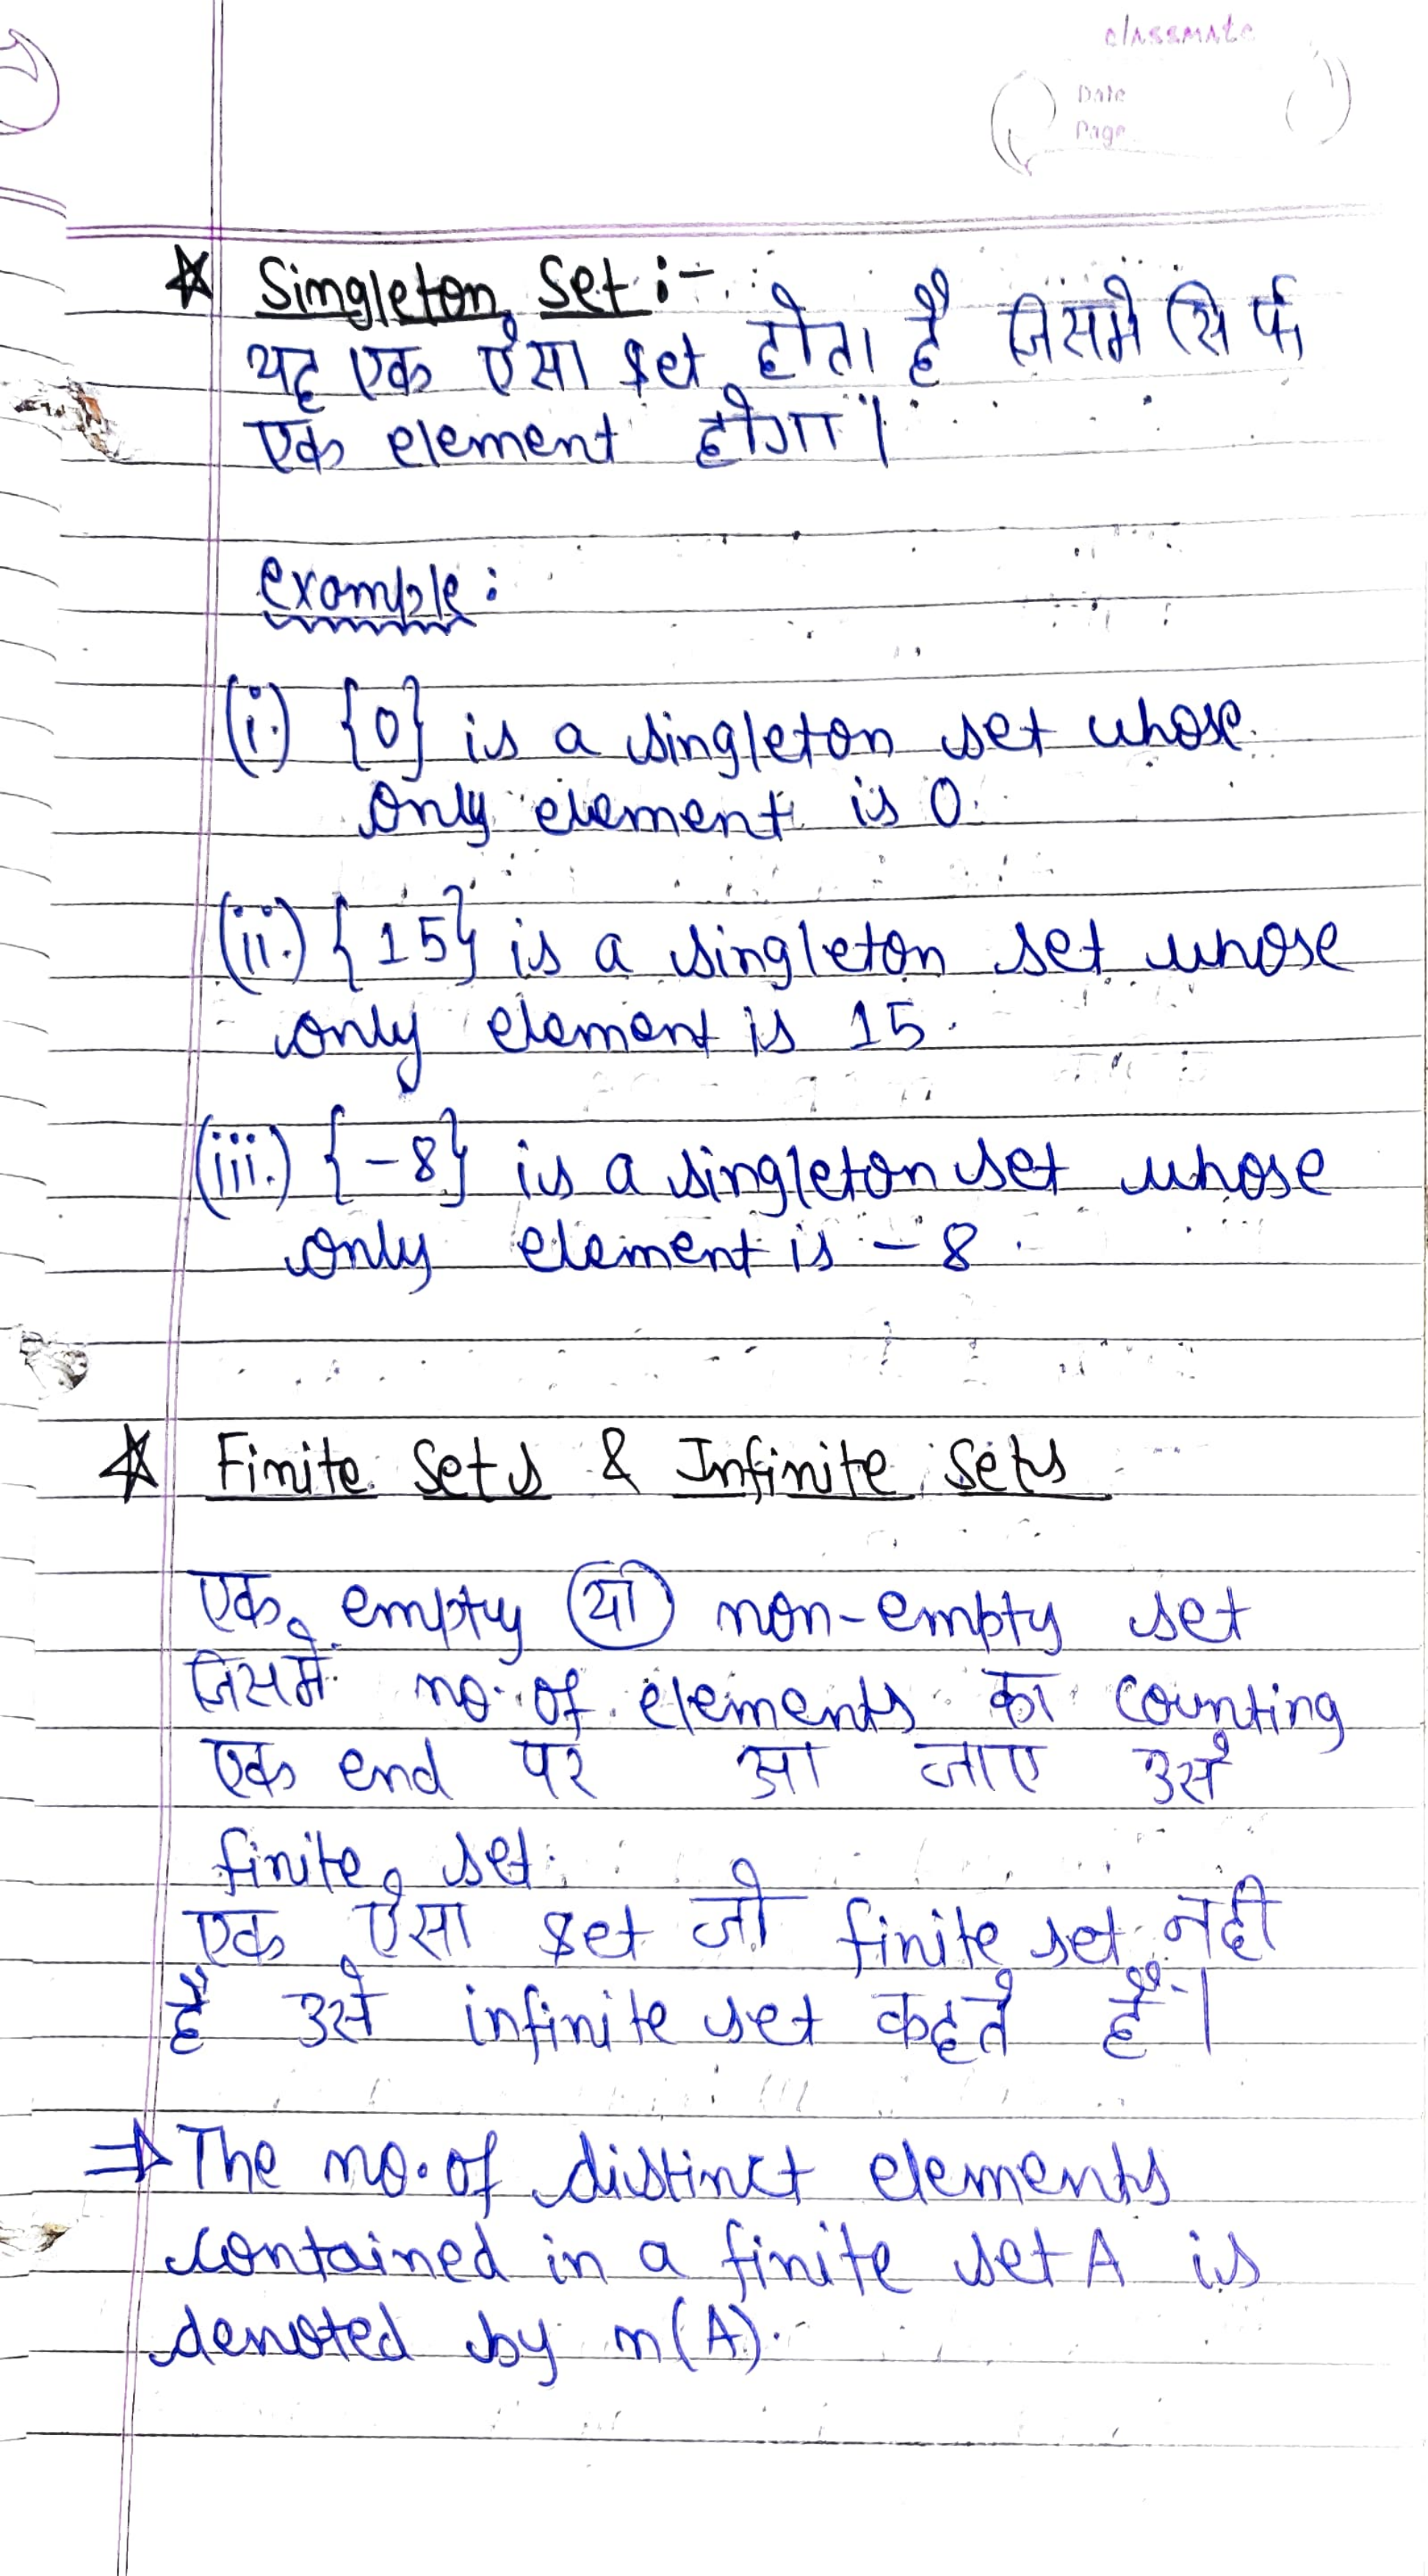 classmate
Date
Page
☆ Singleton Set :-
यह एक ऐसा set होता है जिसमे सिर्फ
एक element होगा।
example:
(i.) {0} is a singleton set whose
only element is 0.
(ii.) {15} is a singleton set whose
only element is 15.
(iii.) {-8} is a singleton set whose
only element is -8.
☆ Finite Sets & Infinite Sets
एक empty या non-empty set
जिसमे no. of elements का counting
एक end पर आ जाए उसे
finite set.
एक ऐसा set जो finite set नही
है उसे infinite set कहते हैं।
⇒ The no. of distinct elements
contained in a finite set A is
denoted by n(A).